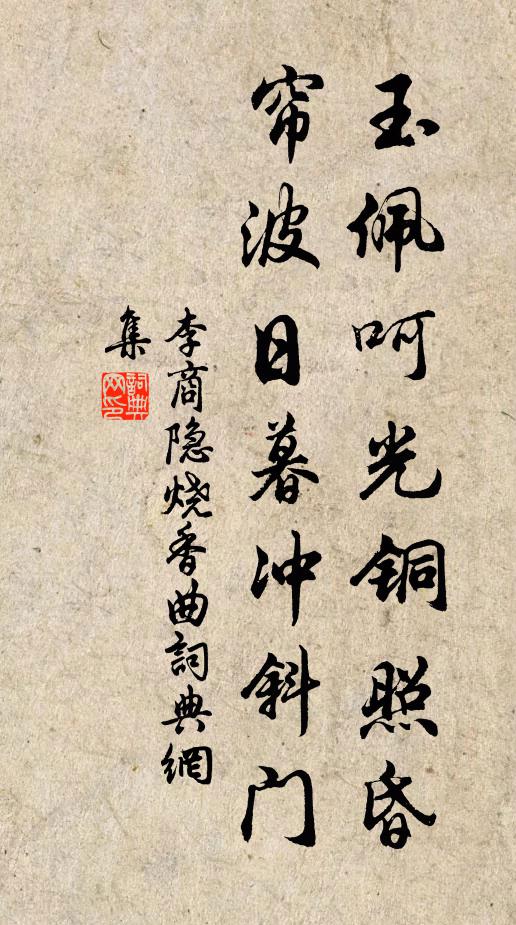 玉佩呵光铜照昏
帘波日暮冲斜门
李商隐烧香曲詞典網
集
詞典网印